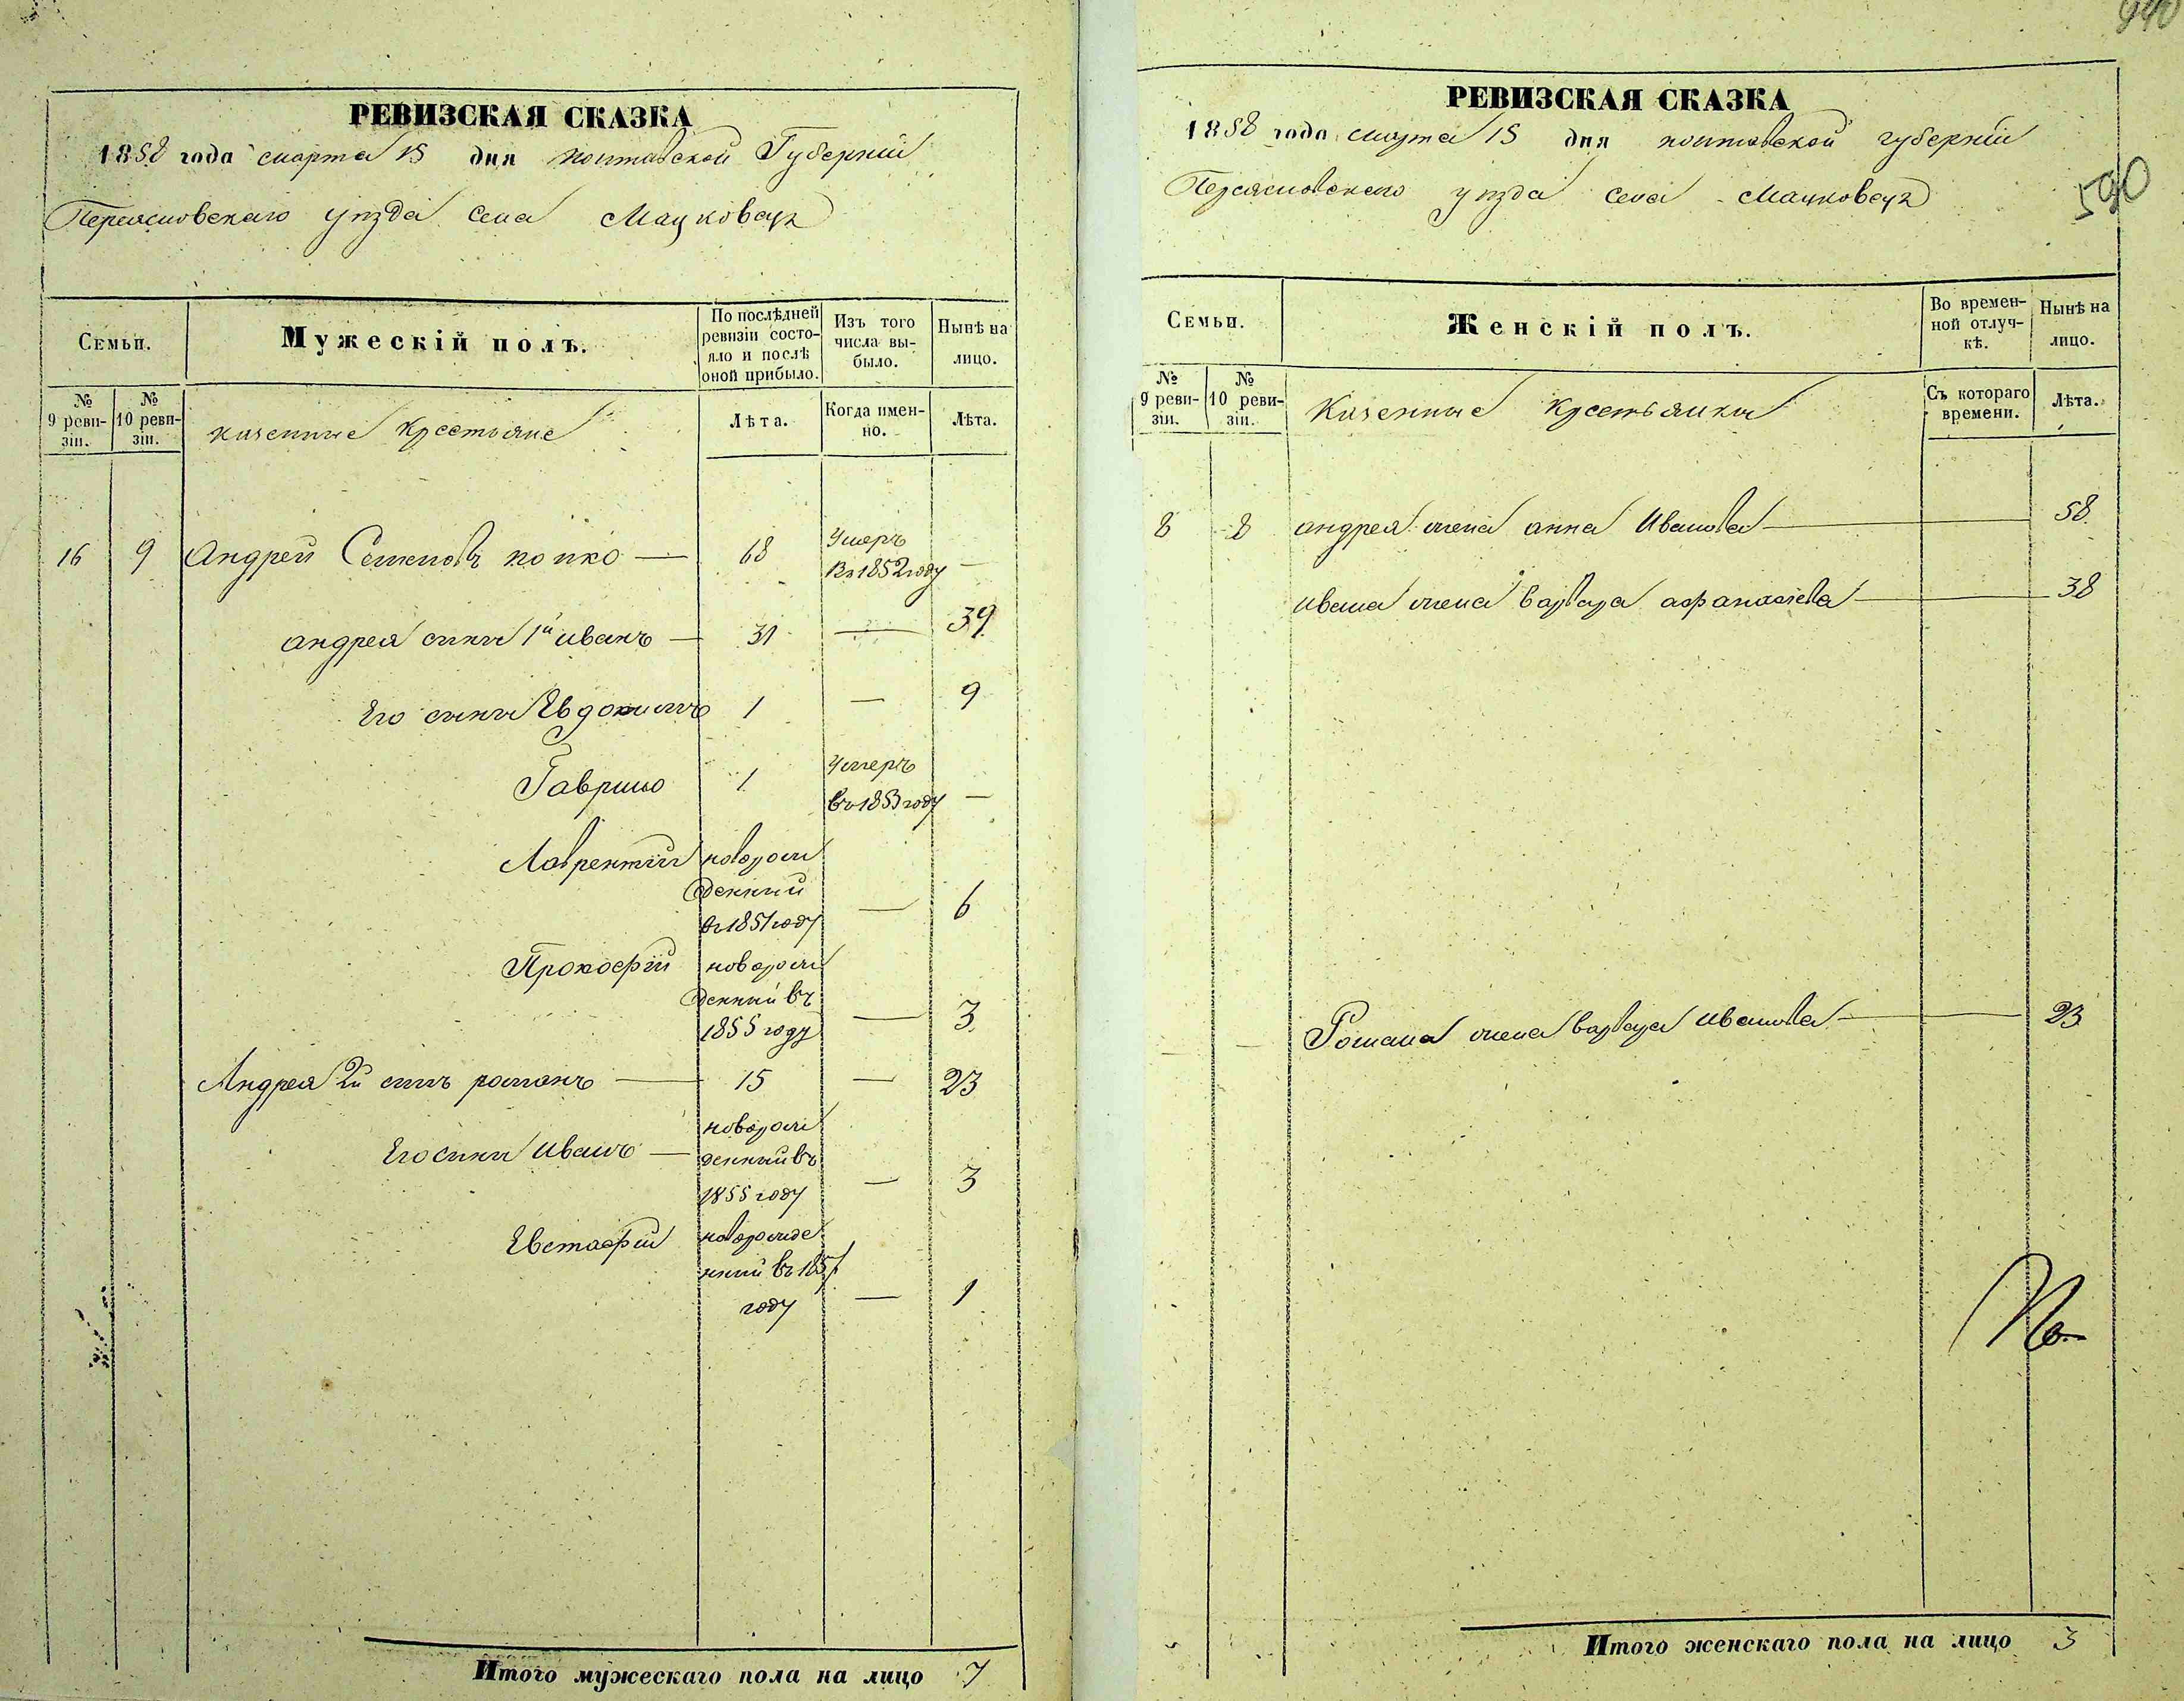 РЕВИЗСКАЯ СКАЗКА
1858 года марта 15 дня полтавской Губернии
Переясловскаго уезда села Мацковець
Семьи.
Мужескій полъ.
По послѣдней ревизіи состояло и послѣ оной прибыло.
Изъ того числа выбыло.
Нынѣ на лицо.
№ 9 ревизіи.
№ 10 ревизіи.
казенные крестьяне
Лѣта.
Когда именно.
Лѣта.
16 9 Андрей Семеновъ попко — 68 Умеръ въ 1852 году —
андрея сыны 1й иванъ — 31 — 39
Его сыны Евдокимъ 1 — 9
Гаврило 1 Умеръ въ 1853 году —
Лаврентий новорожденный въ 1851 году — 6
Прокофий новорожденный въ 1855 году — 3
Андрея 2й сынъ романъ — 15 — 23
Его сыны иванъ — новорожденный въ 1855 году — 3
Евстафий новорожденный въ 1857 году — 1
Итого мужескаго пола на лицо 7
590
РЕВИЗСКАЯ СКАЗКА
1858 года марта 15 дня полтавской губернии
Переясловскаго уезда села Мацковець
Семьи.
Женскій полъ.
Во временной отлучкѣ.
Нынѣ на лицо.
№ 9 ревизіи.
№ 10 ревизіи.
Казенные крестьянки
Съ котораго времени.
Лѣта.
8 8 андрея жена анна Иванова — 58
ивана жена варвара афанасiева — 38
Романа жена варвара иванова — 23
Итого женскаго пола на лицо 3